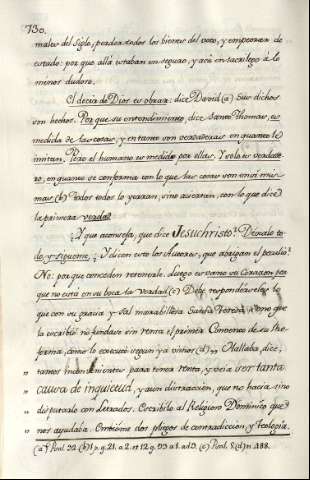 730.
males del siglo, perder todos los bienes del voto, y empeorar de
estado: por que allá estaban en seguro, y acá en sacrilegio á lo
menos dudoso.
El decir de Dios es obrar: dice David (a) Sus dichos
son hechos. Porque su entendimiento, dice Santo Thomas, es
medida de las cosas, y en tanto son verdaderas en quanto le
imitan. Pero el humano es medido por ellas. Y solo es verdade-
ro, en quanto se conforma con lo que las cosas son en si mis-
mas (b) Todos todos lo yerran, sino aciertan, con lo que dice
la primera verdad.
Y que aconseja, que dice Jesuchristo? Dexalo to-
do, y sigueme. Y dicen esto los Autores, que abrigan el peculio?
No: por que conceden retenerle. Luego es vano su Corazon, por
que no está en su boca la verdad (c) Debe responderseles lo
que con su gracia y sal maravillosa Santa Teresa à uno que
la escribió no fundase sin renta el primer Convento de su Re-
forma, como lo executó segun ya vimos (d) Hallaba, dice,
tantos inconvenientes para tener renta, y veia ser tanta
causa de inquietud, y aun distraccion, que no hacia sino
disputarlo con Letrados. Escribilo al Religioso Dominico que
nos ayudaba. Embióme dos pliegos de contradiccion, y Teologia,
(a) Psal. 32. (b) 1. p. q. 21. a. 2. et 12. q. 93. a 1. ad 3. (c) Psal. 5. (d) n. 488.